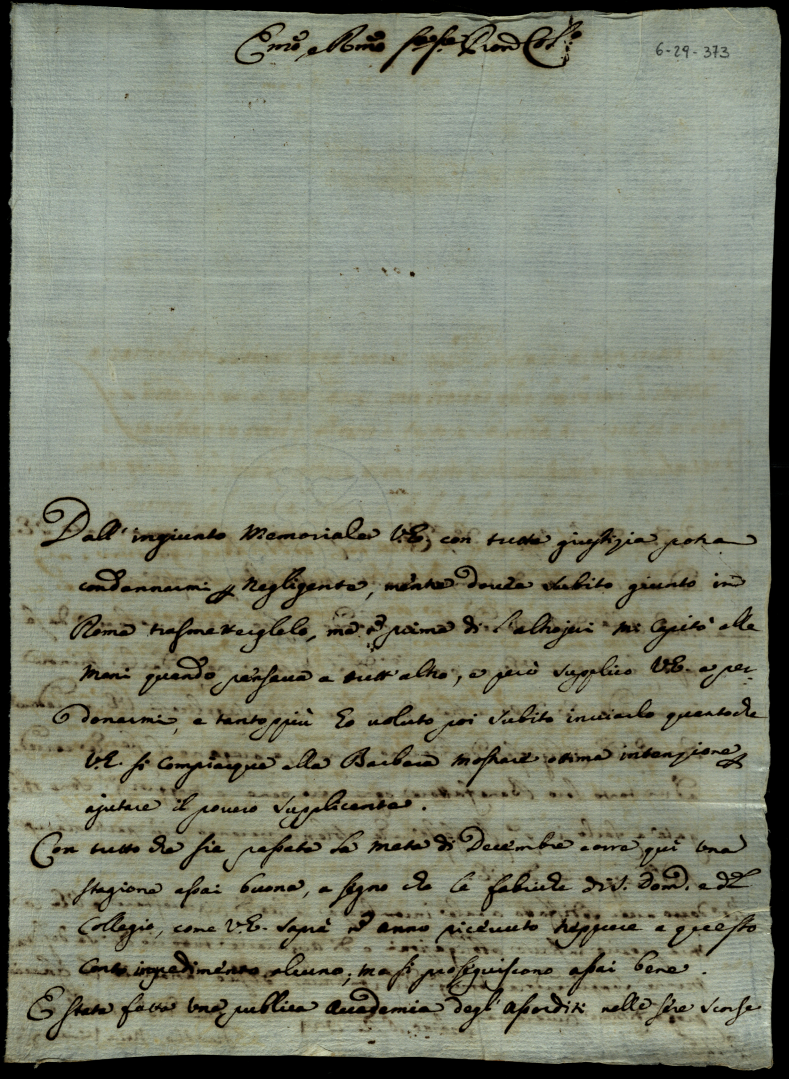 Emõ, e Rmõ Sig.r Sig.r Pron Col.mo
6-29-373
Dall' ingiunto Memoriale V.E. con tutta giustizia potra
condannarmi negligente, mentre dovea subito giunto in
Roma trasmetterglelo, ma ñ prima di l'altrojeri mi capitò alle
Mani quando pensava a tutt'altro, e però supplico V.E. a per-
donarmi, e tantoppiù ho voluto poi subito inviarlo quanto che
V.E. si compiacque alla Barbara mostrare ottima intenzione
ajutare il povero supplicante.
Con tutto che sia passata la metà di Decembre corre quì una
stagione assai buona, a segno che le fabriche di S. Dom. e del
Collegio, come V.E. saprà ñ anno ricevuto neppure a questo
conto impedimento alcuno, ma si proseguiscono assai bene.
E stata fatta una publica Accademia degl' Assorditi nelle sere scorse